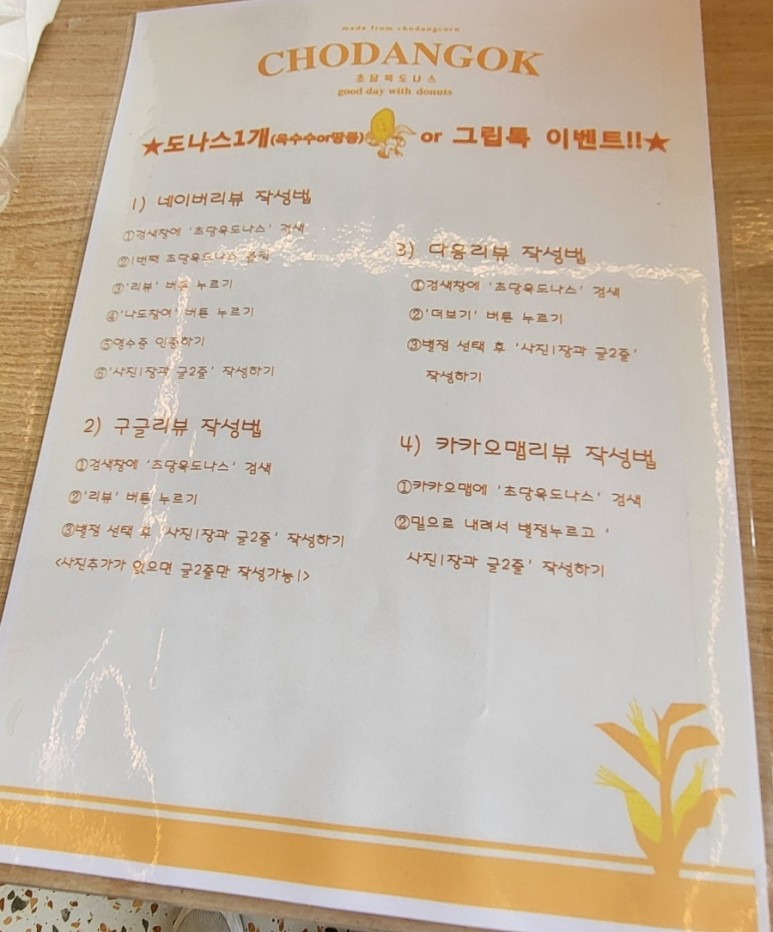 made from chodangcorn
CHODANGOK
초당옥도나스
good day with donuts
★도나스1개(옥수수or땅콩) or 그립톡 이벤트!!★
1) 네이버리뷰 작성법
①검색창에 '초당옥도나스' 검색
②1번째 초당옥도나스 클릭
③'리뷰' 버튼 누르기
④'나도참여' 버튼 누르기
⑤영수증 인증하기
⑥'사진1장과 글2줄' 작성하기
2) 구글리뷰 작성법
①검색창에 '초당옥도나스' 검색
②'리뷰' 버튼 누르기
③별점 선택 후 '사진1장과 글2줄' 작성하기
<사진추가가 있으면 글2줄만 작성가능!>
3) 다음리뷰 작성법
①검색창에 '초당옥도나스' 검색
②'더보기' 버튼 누르기
③별점 선택 후 '사진1장과 글2줄'
작성하기
4) 카카오맵리뷰 작성법
①카카오맵에 '초당옥도나스' 검색
②밑으로 내려서 별점누르고 '
사진1장과 글2줄' 작성하기